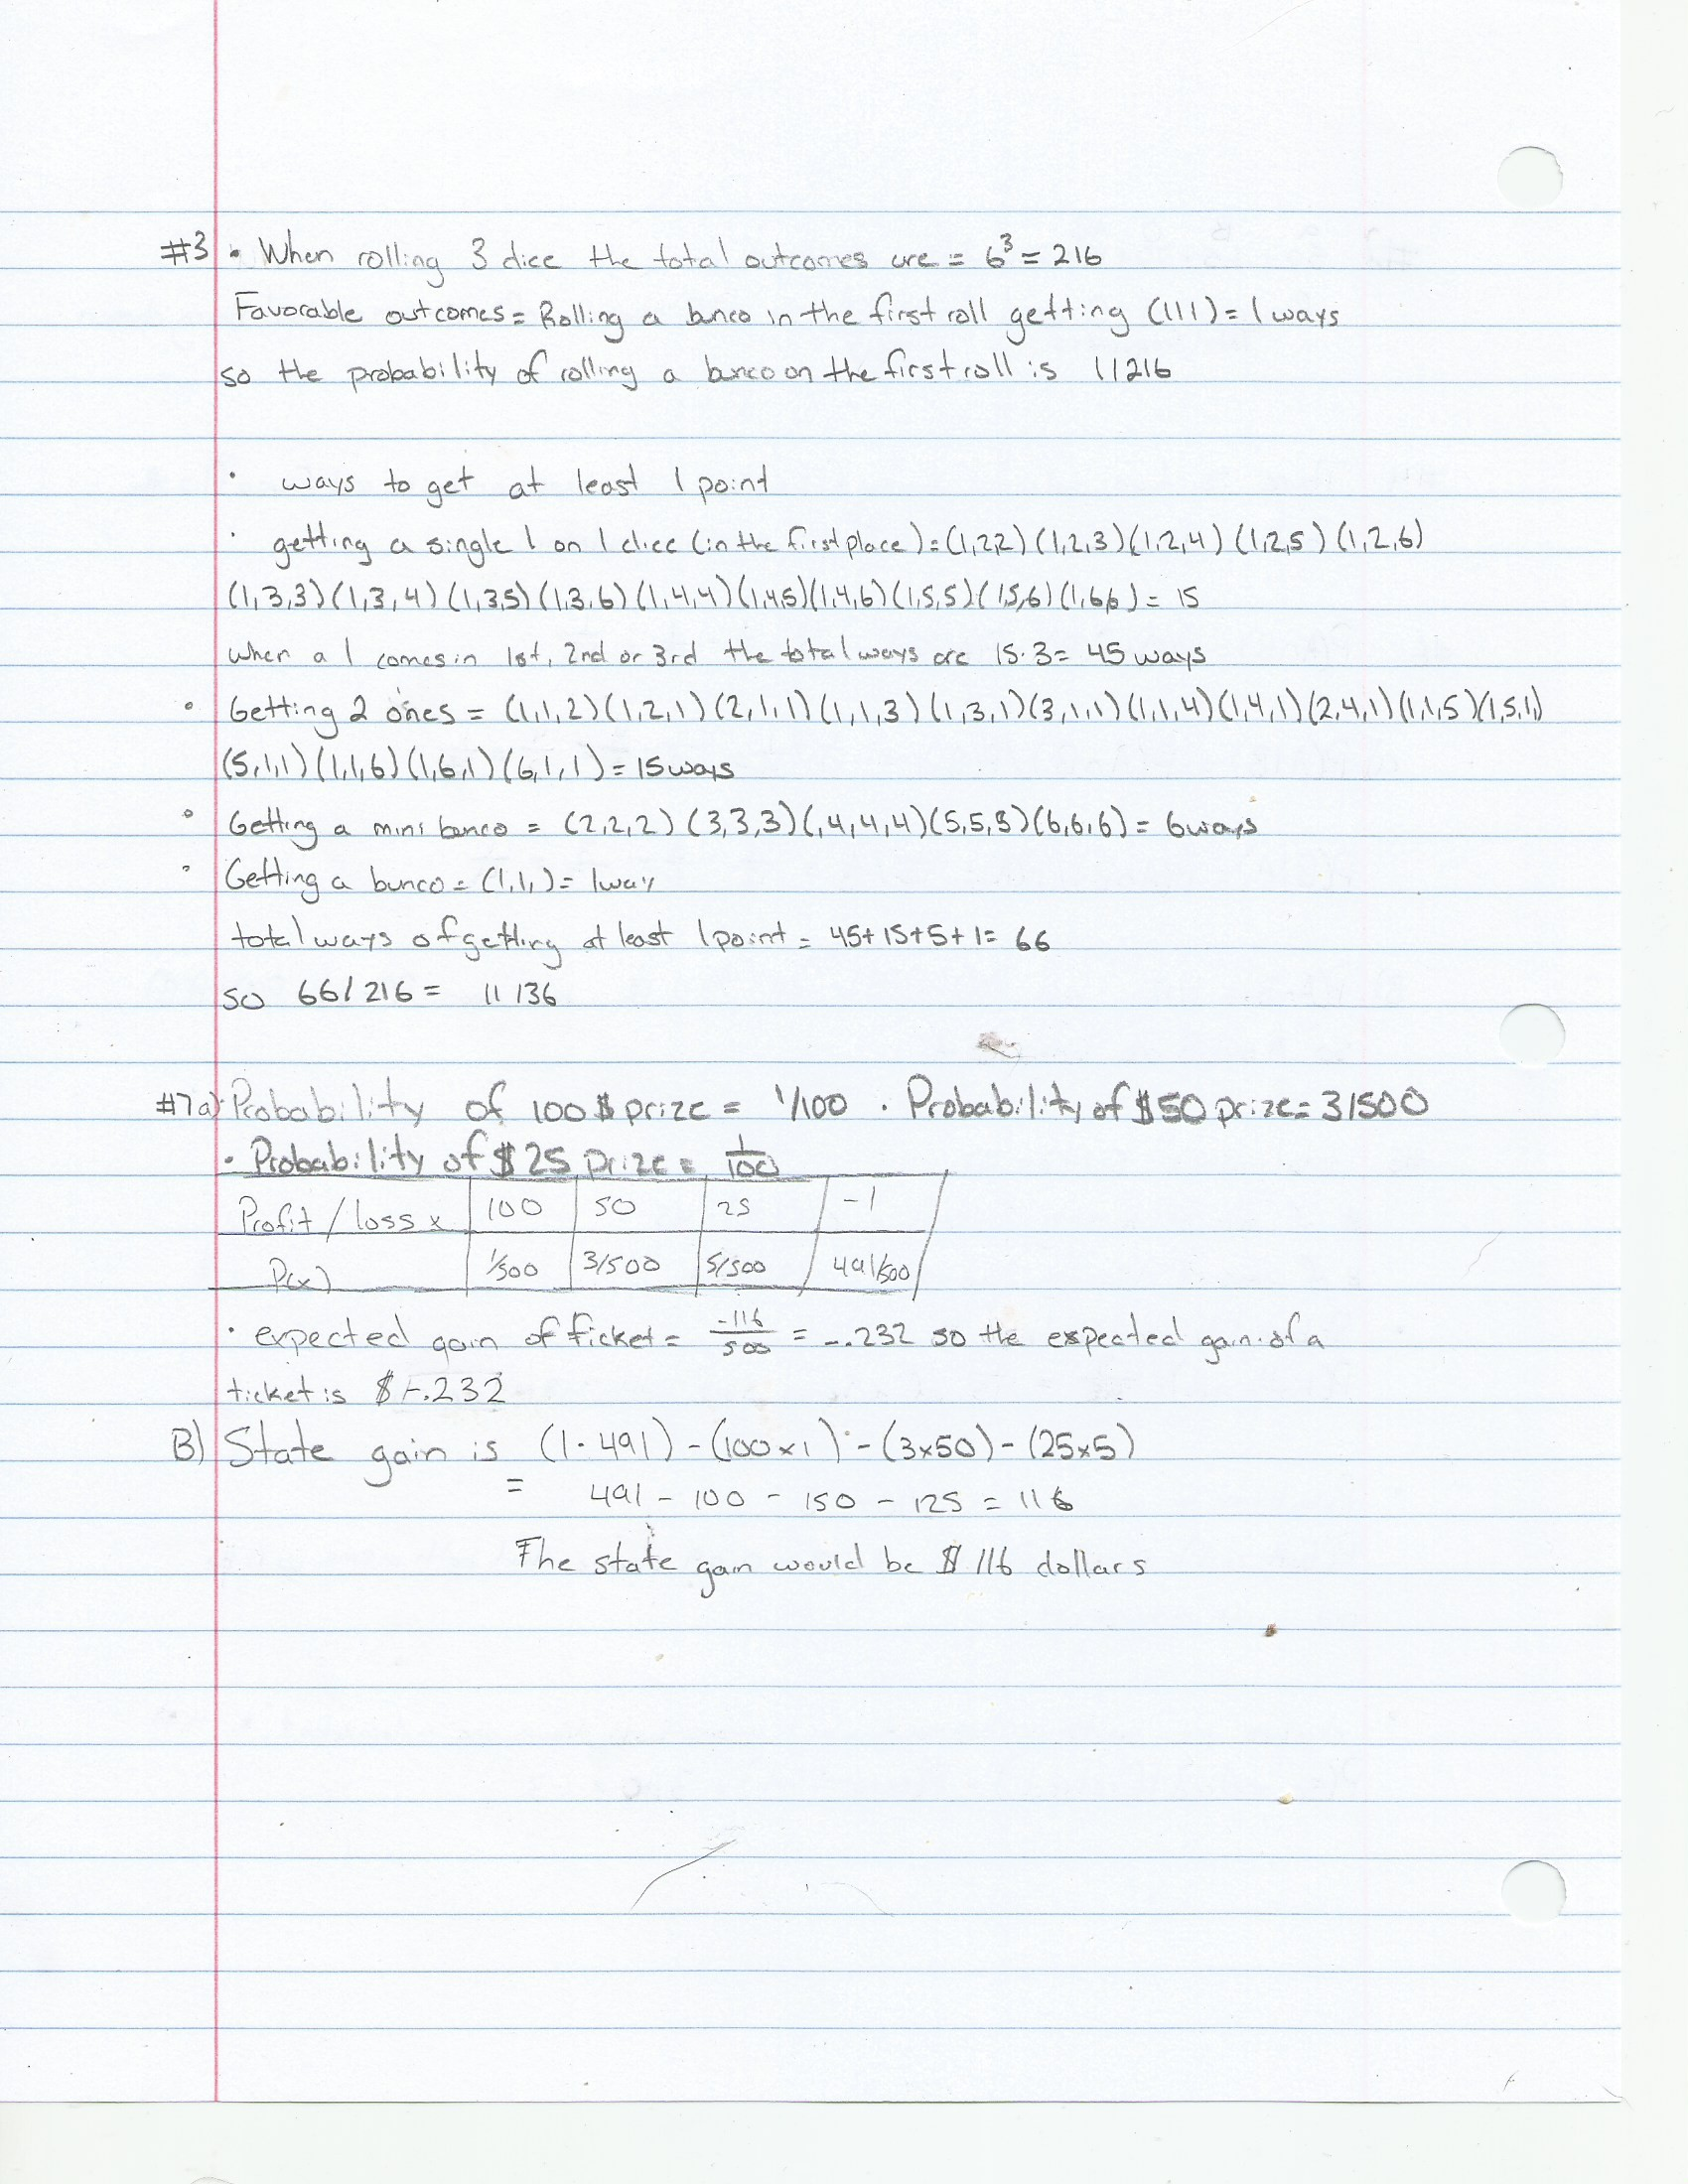 #3 • When rolling 3 dice the total outcomes are = 6³ = 216
Favorable outcomes = Rolling a bunco in the first roll getting (111) = 1 ways
so the probability of rolling a bunco on the first roll is 1/216
• ways to get at least 1 point
• getting a single 1 on 1 dice (in the first place) = (1,2,2) (1,2,3) (1,2,4) (1,2,5) (1,2,6)
(1,3,3) (1,3,4) (1,3,5) (1,3,6) (1,4,4) (1,4,5) (1,4,6) (1,5,5) (1,5,6) (1,6,6) = 15
when a 1 comes in 1st, 2nd or 3rd the total ways are 15·3 = 45 ways
• Getting 2 ones = (1,1,2) (1,2,1) (2,1,1) (1,1,3) (1,3,1) (3,1,1) (1,1,4) (1,4,1) (2,4,1) (1,1,5) (1,5,1)
(5,1,1) (1,1,6) (1,6,1) (6,1,1) = 15 ways
• Getting a mini bunco = (2,2,2) (3,3,3) (,4,4,4) (5,5,5) (6,6,6) = 6 ways
• Getting a bunco = (1,1,) = 1 way
total ways of getting at least 1 point = 45+15+5+1 = 66
so 66/216 = 11/36
#7a) • Probability of 100$ prize = 1/100 • Probability of $50 prize = 3/500
• Probability of $25 prize = 1/100
Profit/loss x 100 50 25 -1
P(x) 1/500 3/500 5/500 491/500
• expected gain of ticket = -116/500 = -.232 so the expected gain of a
ticket is $-.232
B) State gain is (1·491) - (100×1) - (3×50) - (25×5)
= 491 - 100 - 150 - 125 = 116
The state gain would be $116 dollars